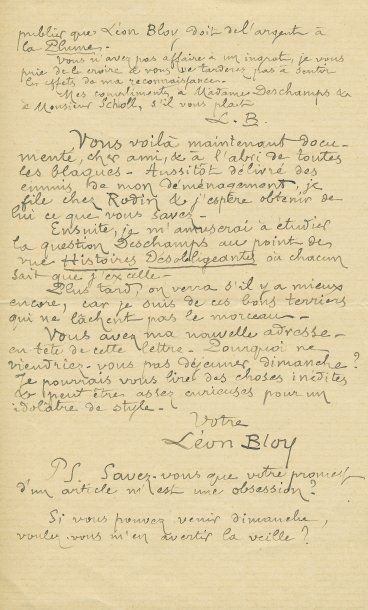 publier que Léon Bloy doit de l'argent à
la Plume.
Vous n'avez pas affaire à un ingrat, je vous
prie de le croire & vous ne tarderez pas à sentir
les effets de ma reconnaissance.
Mes compliments à Madame Deschamps &
à Monsieur Scholl, s'il vous plaît
L. B.
Vous voilà maintenant docu-
menté, cher ami, & à l'abri de toutes
les blagues. Aussitôt délivré des
ennuis de mon déménagement, je
file chez Rodin & j'espère obtenir de
lui ce que vous savez.
Ensuite, je m'amuserai à étudier
la question Deschamps au point de
vue Histoires Désobligeantes où chacun
sait que j'excelle.
Plus tard, on verra s'il y a mieux
encore, car je suis de ces bons terriers
qui ne lâchent pas le morceau.
Vous avez ma nouvelle adresse
en tête de cette lettre. Pourquoi ne
viendriez-vous pas déjeuner dimanche?
Je pourrais vous lire des choses inédites
& peut être assez curieuses pour un
idolâtre de style.
Votre
Léon Bloy
PS. Savez-vous que votre promesse
d'un article m'est une obsession?
Si vous pouvez venir dimanche,
voulez-vous m'en avertir la veille?